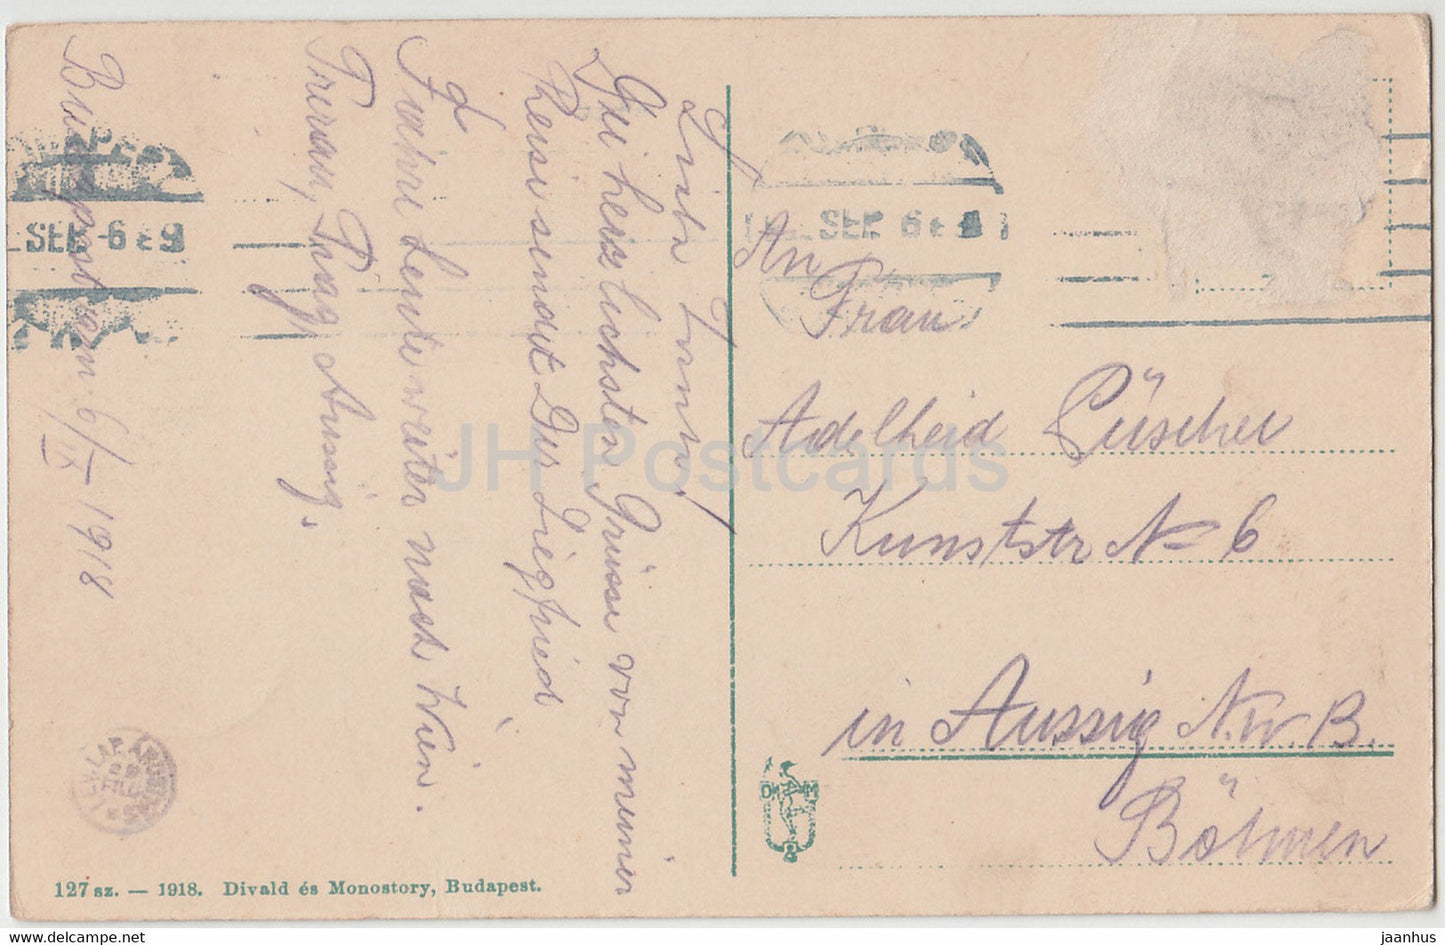 Budapest am 6/IX 1918
Liebe Tante,
Die herzlichsten Grüsse von meiner
Reise sendet Dir Siegfried
Fahre heute weiter nach Wien.
Prag, Aussig.
An
Frau
Adelheid Püscher
Kunststr No 6
in Aussig N.W.B.
Böhmen
SEP -6
SEP 6
D M
B
127 sz. — 1918. Divald és Monostory, Budapest.
JH Postcards
jaanhus
delcampe.net